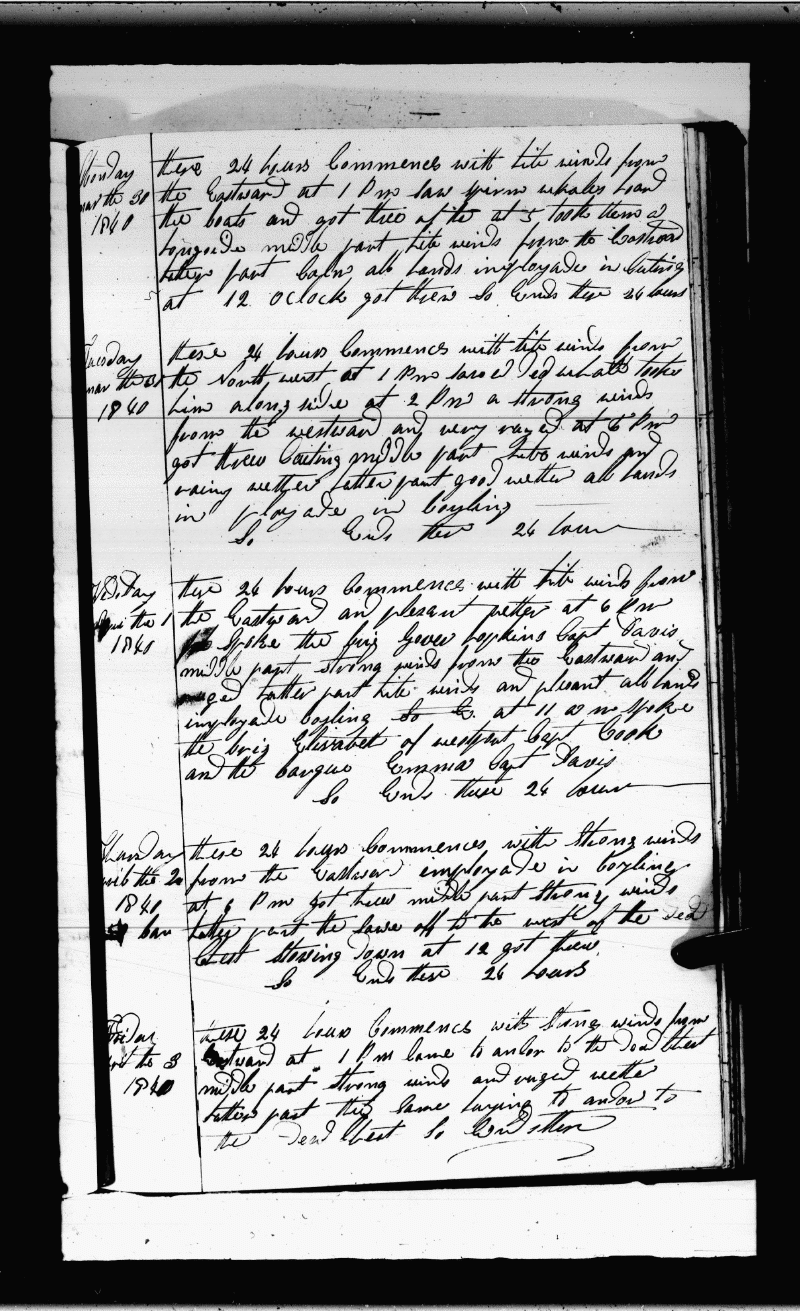 Monday
mar the 30
1840
these 24 hours Commences with lite winds from
the Eastward at 1 Pm saw spirm whales loard
the boats and got three of the at 5 took them a
longside middle part lite winds from the Eastward
latter part Calm all hands imployade in Cuting
at 12 Oclock got threw So Ends these 24 hours
Tuesday
mar the 31
1840
these 24 hours Commences with lite winds from
the North west at 1 Pm sawed ded whale tooke
him along side at 2 Pm a strong winds
from the westward and very ruged at 6 Pm
got threw Cuting middle part lite winds and
rainy wether latter part good wether all hands
in ployade in boyling
So Ends thes 24 hours
the 1
1840
these 24 hours Commences with lite winds from
the Eastward and plesant wether at 6 Pm
Spoke the brig Gover hopkins Capt Davis
middle part strong winds from the Eastward and
ruged latter part lite winds and plesant all hands
imployade boyling So E at 11 a m spoke
the brig Elizabet of westport Capt Cook
and the barque Emma Capt Davis
So Ends these 24 hours
Thursday
the 2
1840
these 24 hours Commences with Strong winds
from the Eastward employade in boyling
at 6 Pm got threw middle part Strong winds
latter part the same off to the west of the Ded
Chest Stowing down at 12 got threw
So Ends these 24 hours
Friday
the 3
1840
these 24 hours Commences with Strong winds from
Eastward at 1 Pm Came to ancor to the Dead Chest
middle part Strong winds and ruged wether
latter part they Same laying to ancor to
the Dead Chest So Ends